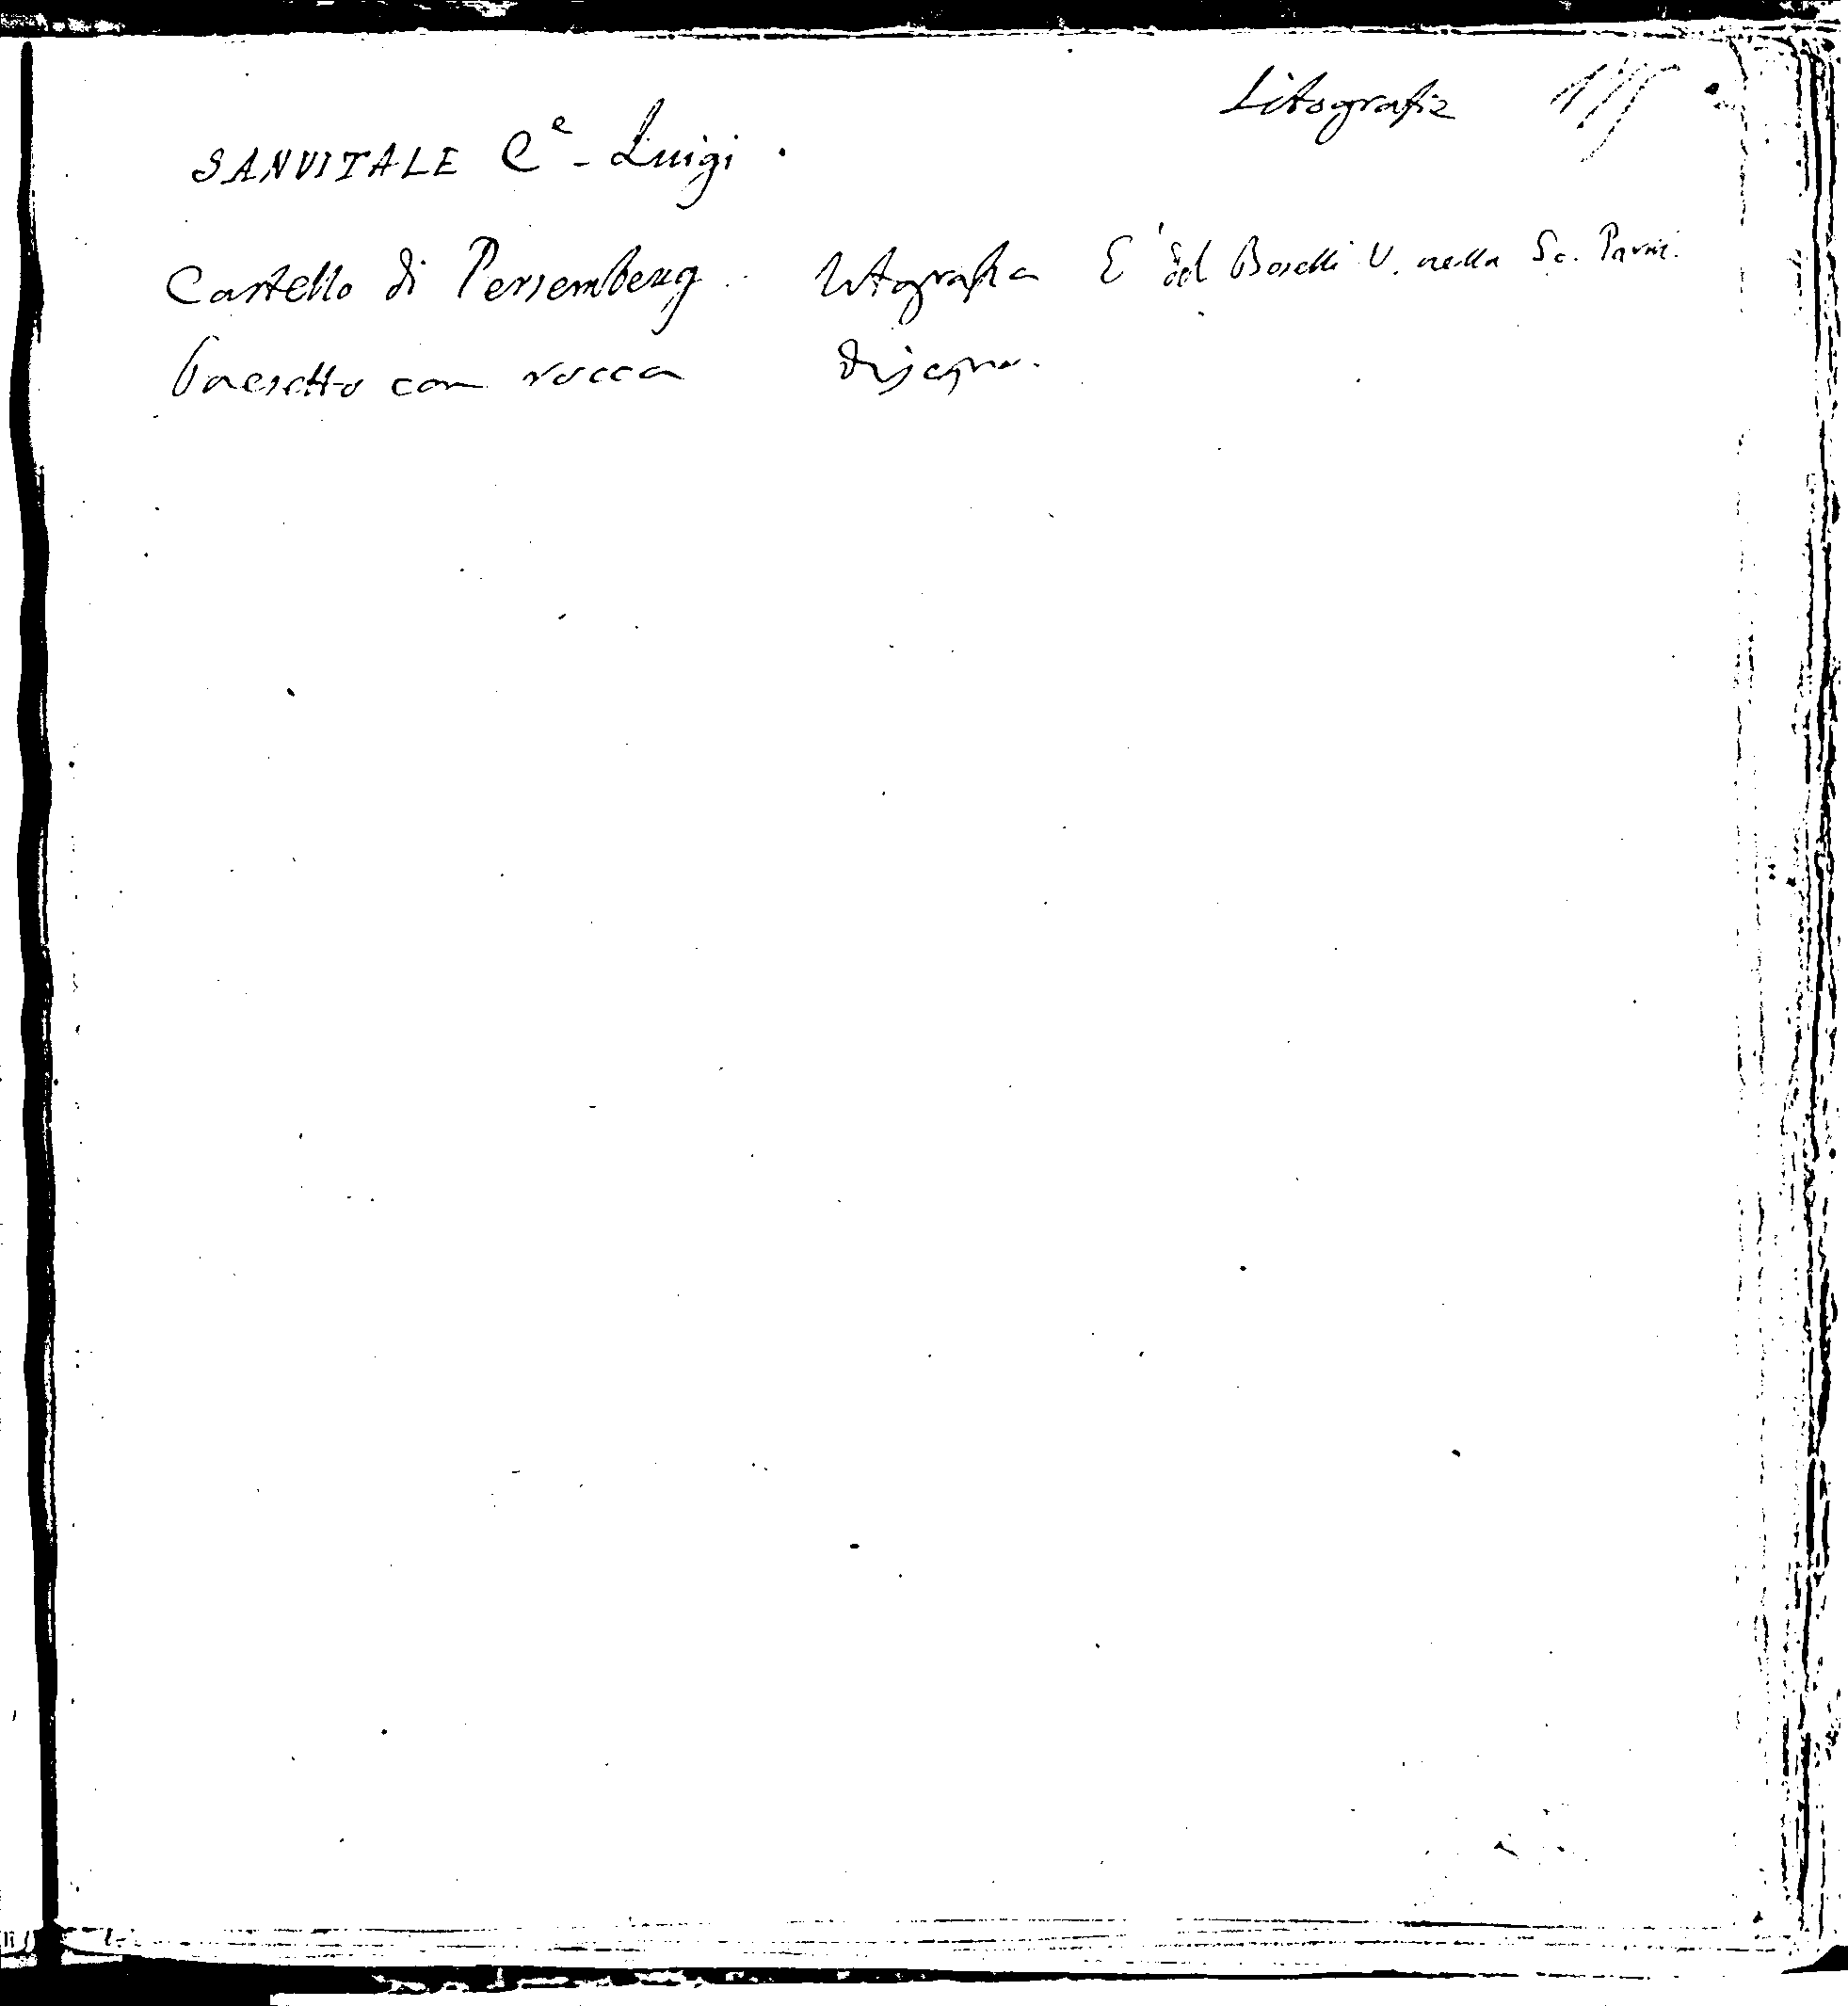 Litografia
SANVITALE Cᵉ - Luigi.
Castello di Persemberg. litografia E' del Boselli V. nella Sc. Parm.
Paesetto con rocca disegno.